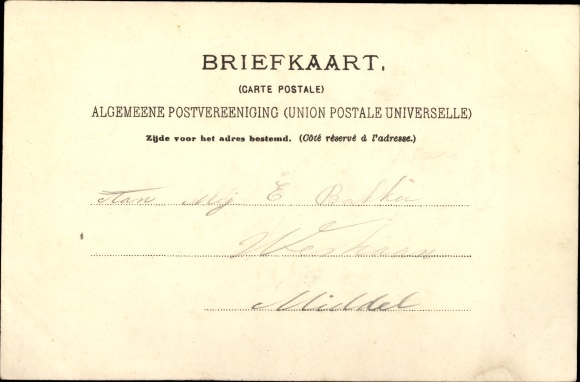 BRIEFKAART.
(CARTE POSTALE)
ALGEMEENE POSTVEREENIGING (UNION POSTALE UNIVERSELLE)
Zijde voor het adres bestemd. (Côté réservé à l'adresse.)
Aan Mej E
Middel